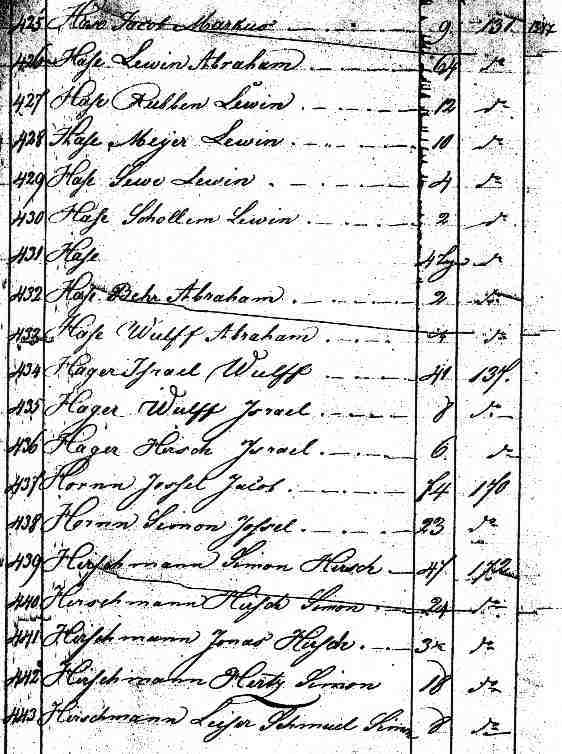 425 Hase Jacob Markus 9 131
426 Hase Lewin Abraham 64 do
427 Hase Rubben Lewin 12 do
428 Hase Meyer Lewin 10 do
429 Hase Lewin 4 do
430 Hase Schollem Lewin 2 do
431 Hase do
432 Hase Behr Abraham 2 do
433 Hase Wulff Abraham do
434 Hager Israel Wulff 41 137
435 Hager Wulff Israel 8 do
436 Hager Hirsch Israel 6 do
437 Hornn Jossel Jacob 170
438 Hornn Simon Jossel 23 do
439 Hirschmann Simon Hirsch 47 172
440 Hirschmann Hirsch Simon 24 do
441 Hirschmann Jonas Hirsch do
442 Hirschmann Hertz Simon 18 do
443 Hirschmann Leiser Schmuel 8 do